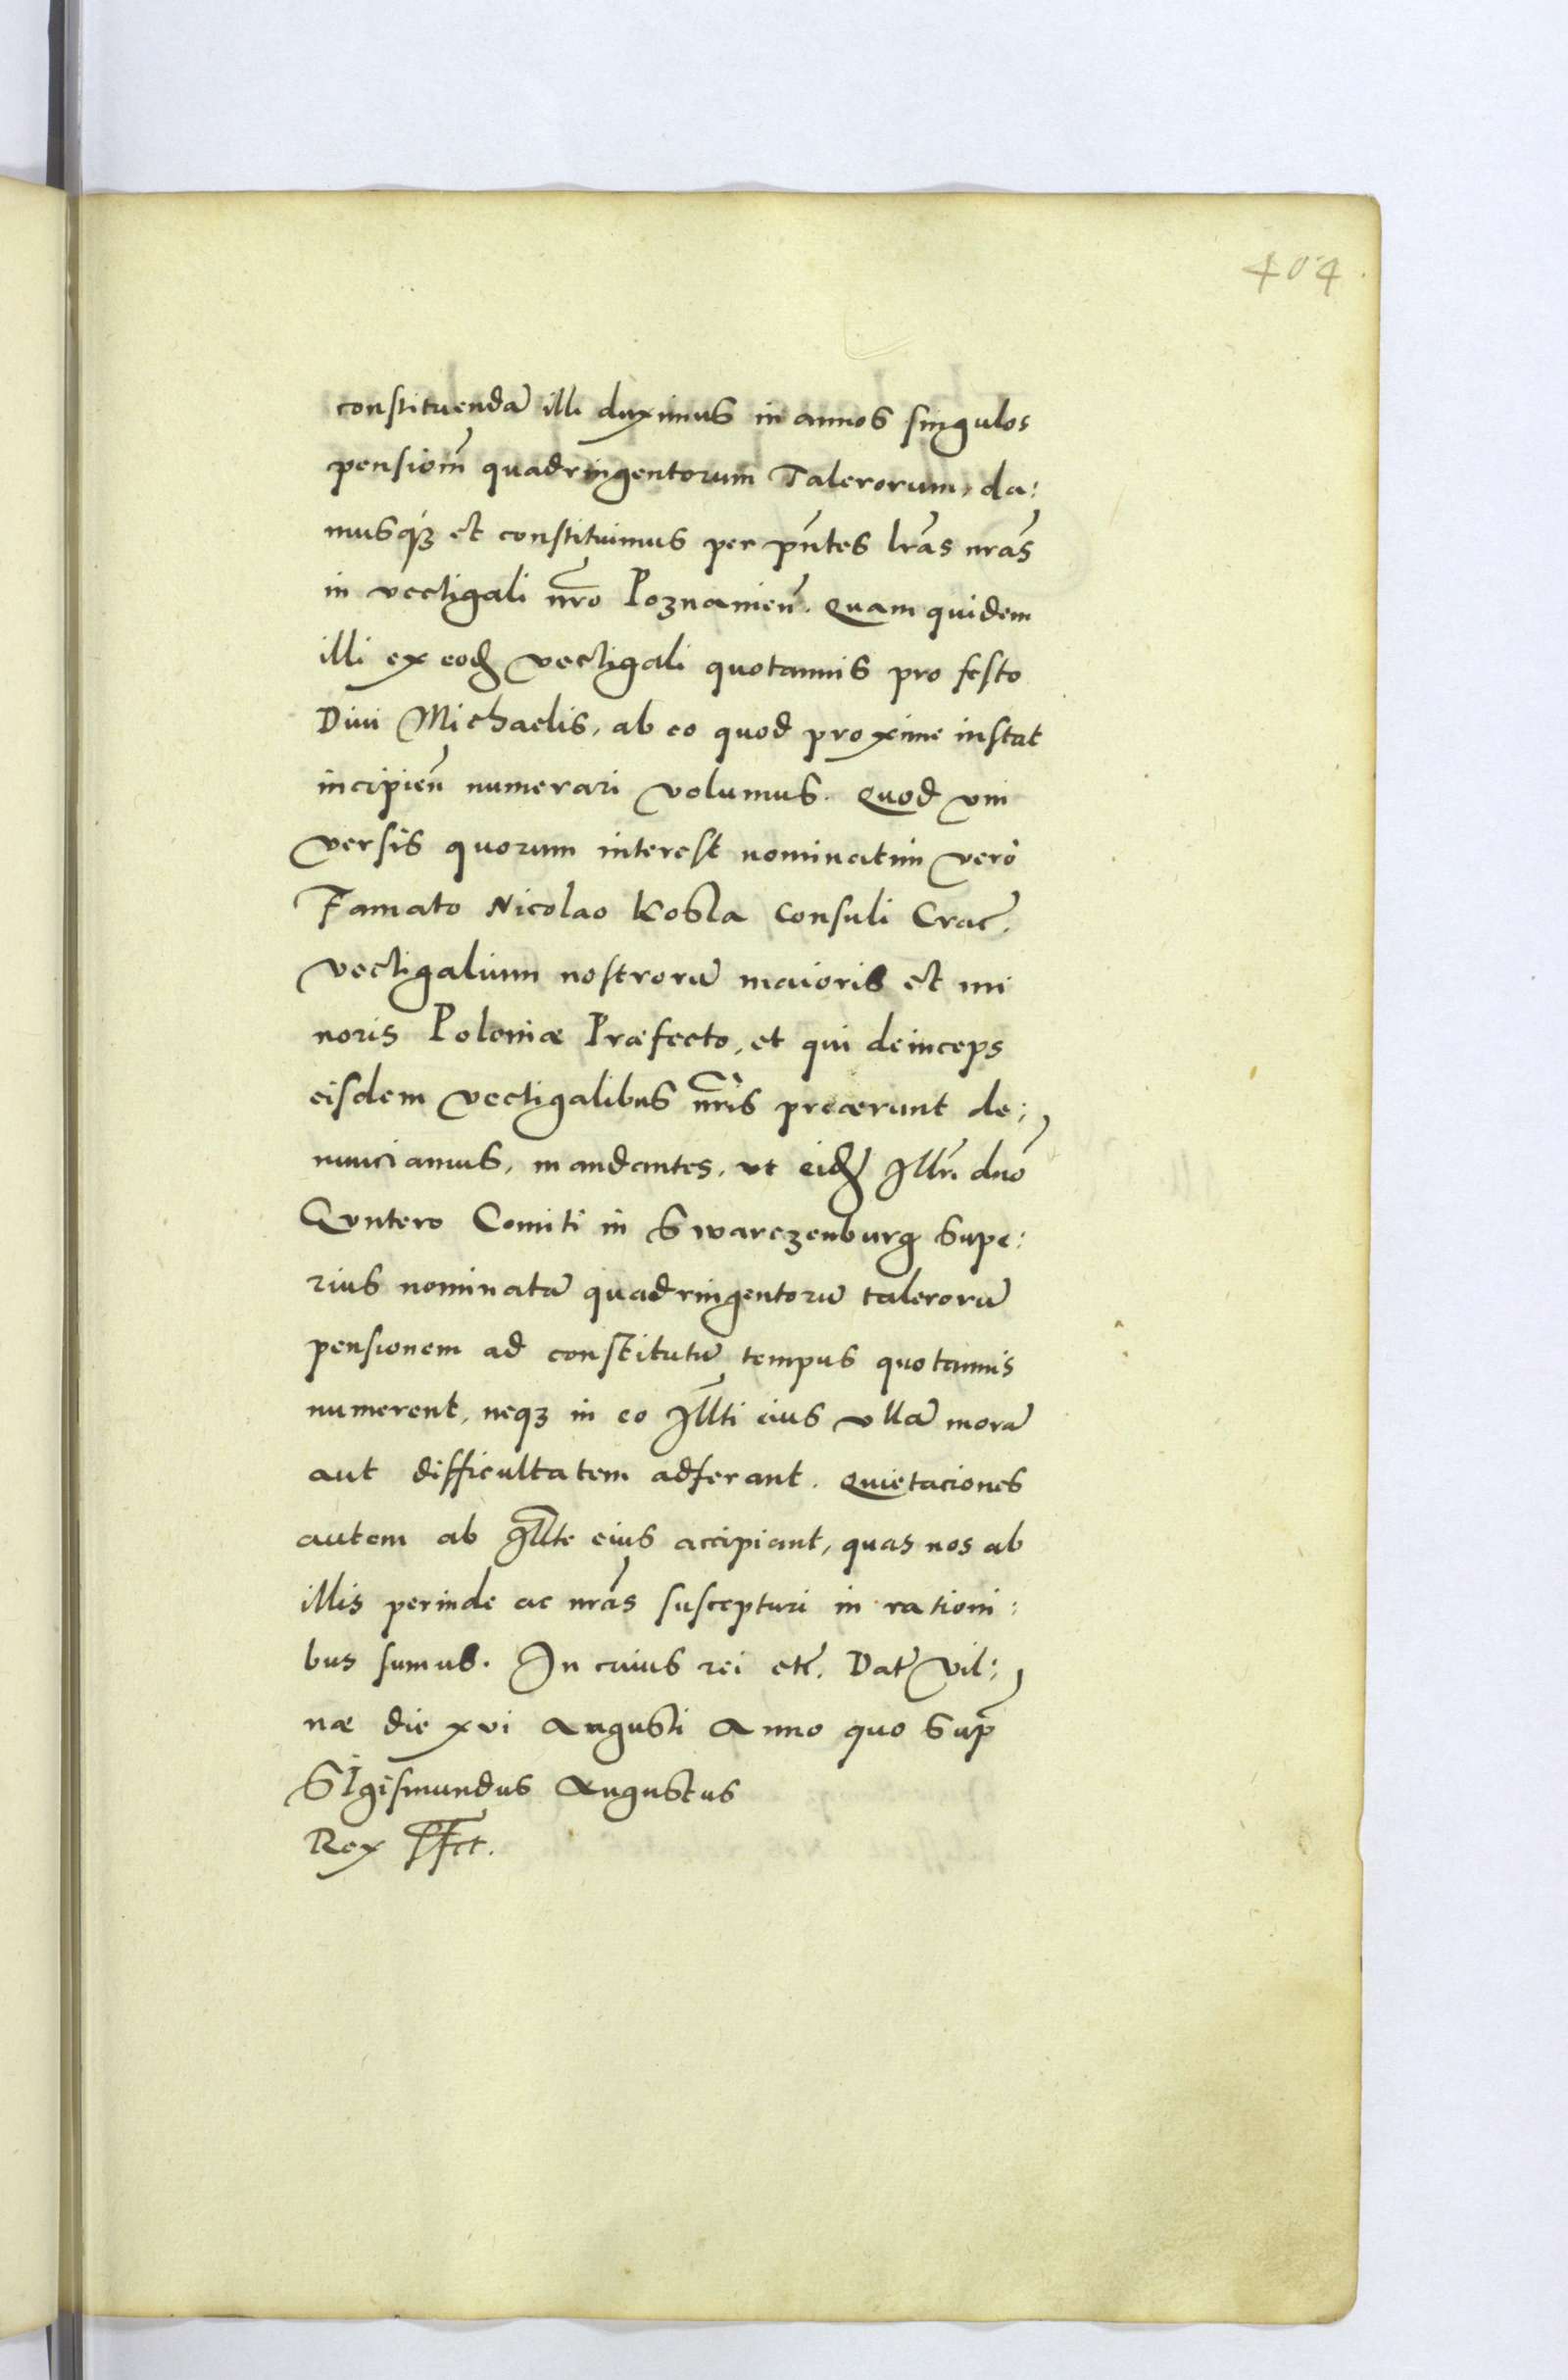 404
constituendā illi duximus in annos singulos
pensionē quadringentorum Talerorum, da:
musq́ꝫ et constituimus per pn̄tes lr̄as nr̄as
in vectigali nr̄o Poznanien̄. Quam quidem
illi ex eod vectigali quotannis pro festo
Diui Michaelis, ab eo quod proxime instat
incipien̄ numerari volumus. Quod vni
versis quorum interest nominatim verò
Famato Nicolao Kosla Consuli Crac̄.
vectigalium nostrorū maioris et mi
noris Poloniæ Præfecto, et qui deinceps
eisdem vectigalibus nr̄is præerunt de:
nunciamus, mandantes, vt eid Illrī dn̄o
Gvntero Comiti in Swarczenburg supe:
rius nominatā quadringentorū talerorū
pensionem ad constitutū tempus quotannis
numerent, neqꝫ in eo Illt̄i eius vllā morā
aut difficultatem adferant. Quietaciones
autem ab Illt̄e eius accipiant, quas nos ab
illis perinde ac nr̄as suscepturi in rationi:
bus sumus. In cuius rei etc̄. Dat̄ Vil:
næ die xvi Augusti Anno quo sup̄
Sigismundus Augustus
Rex